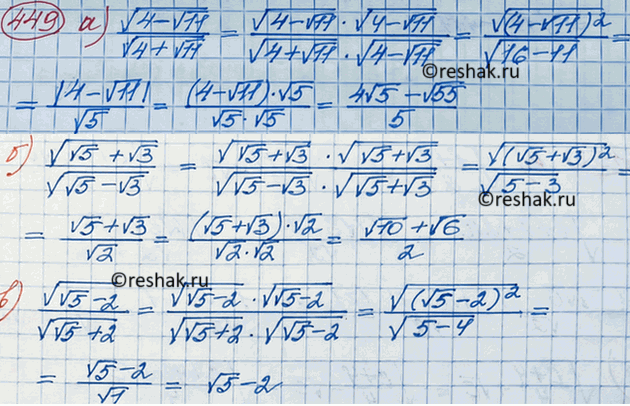 449 а) √(4-√11) / √(4+√11) = √(4-√11) · √(4-√11) / √(4+√11) · √(4-√11) = √((4-√11)²) / √(16-11) =
©reshak.ru
= |4-√11| / √5 = (4-√11)·√5 / √5·√5 = 4√5 - √55 / 5
б) √(√5+√3) / √(√5-√3) = √(√5+√3) · √(√5+√3) / √(√5-√3) · √(√5+√3) = √((√5+√3)²) / √(5-3) =
©reshak.ru
= √5+√3 / √2 = (√5+√3)·√2 / √2·√2 = √10+√6 / 2
©reshak.ru
в) √(√5-2) / √(√5+2) = √(√5-2) · √(√5-2) / √(√5+2) · √(√5-2) = √((√5-2)²) / √(5-4) =
= √5-2 / √1 = √5-2